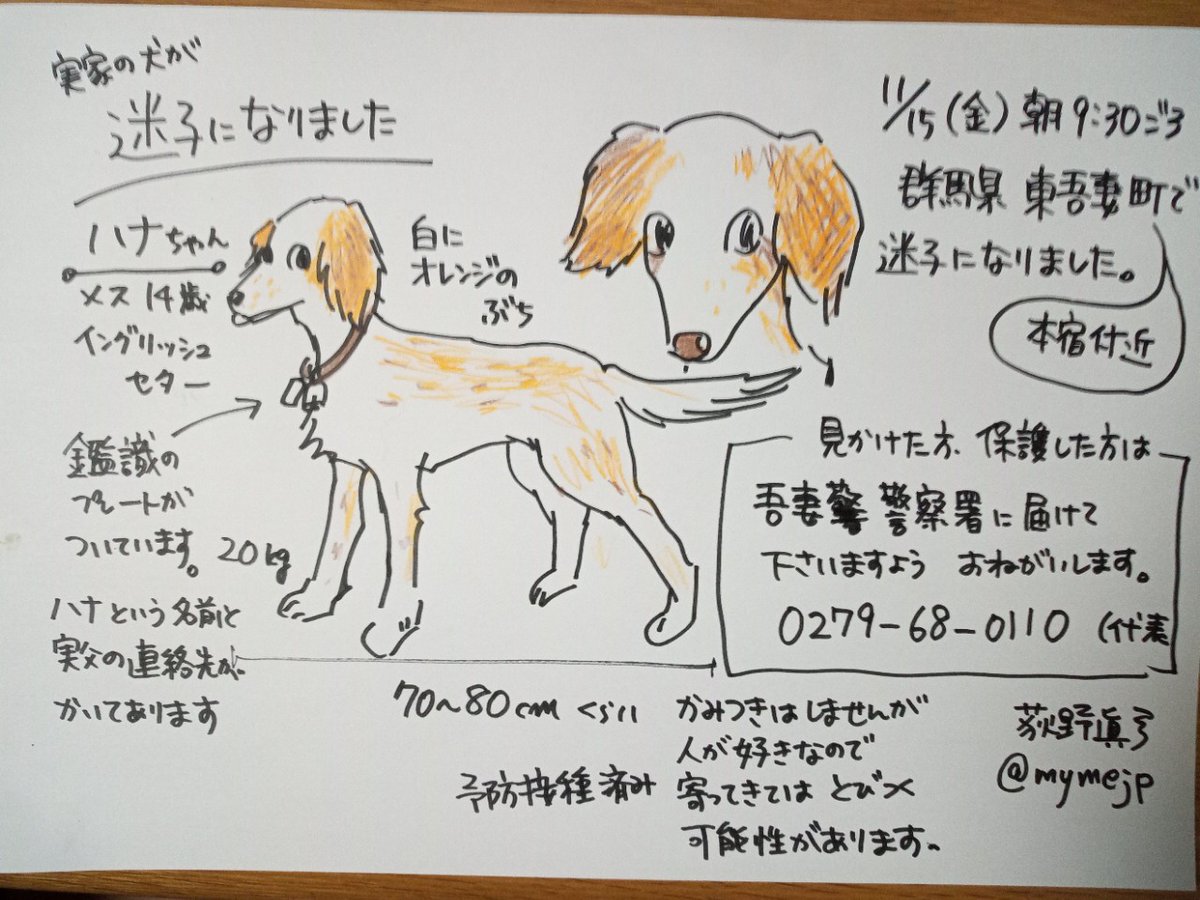 実家の犬が
迷子になりました
ハナちゃん
メス 14歳
イングリッシュ
セター
鑑識の
プレートが
ついています。
ハナという名前と
実父の連絡先が、
かいてあります
白に
オレンジの
ぶち
20kg
70～80cmくらい
予防接種済み
11/15(金)朝9:30ごろ
群馬県 東吾妻町で
迷子になりました。
本宿付近
見かけた方、保護した方は
吾妻警 警察署に届けて
下さいますよう おねがいします。
0279-68-0110 (代表
かみつきはしませんが
人が好きなので
寄ってきては とびつく
可能性があります。
荻野眞弓
@mymejp